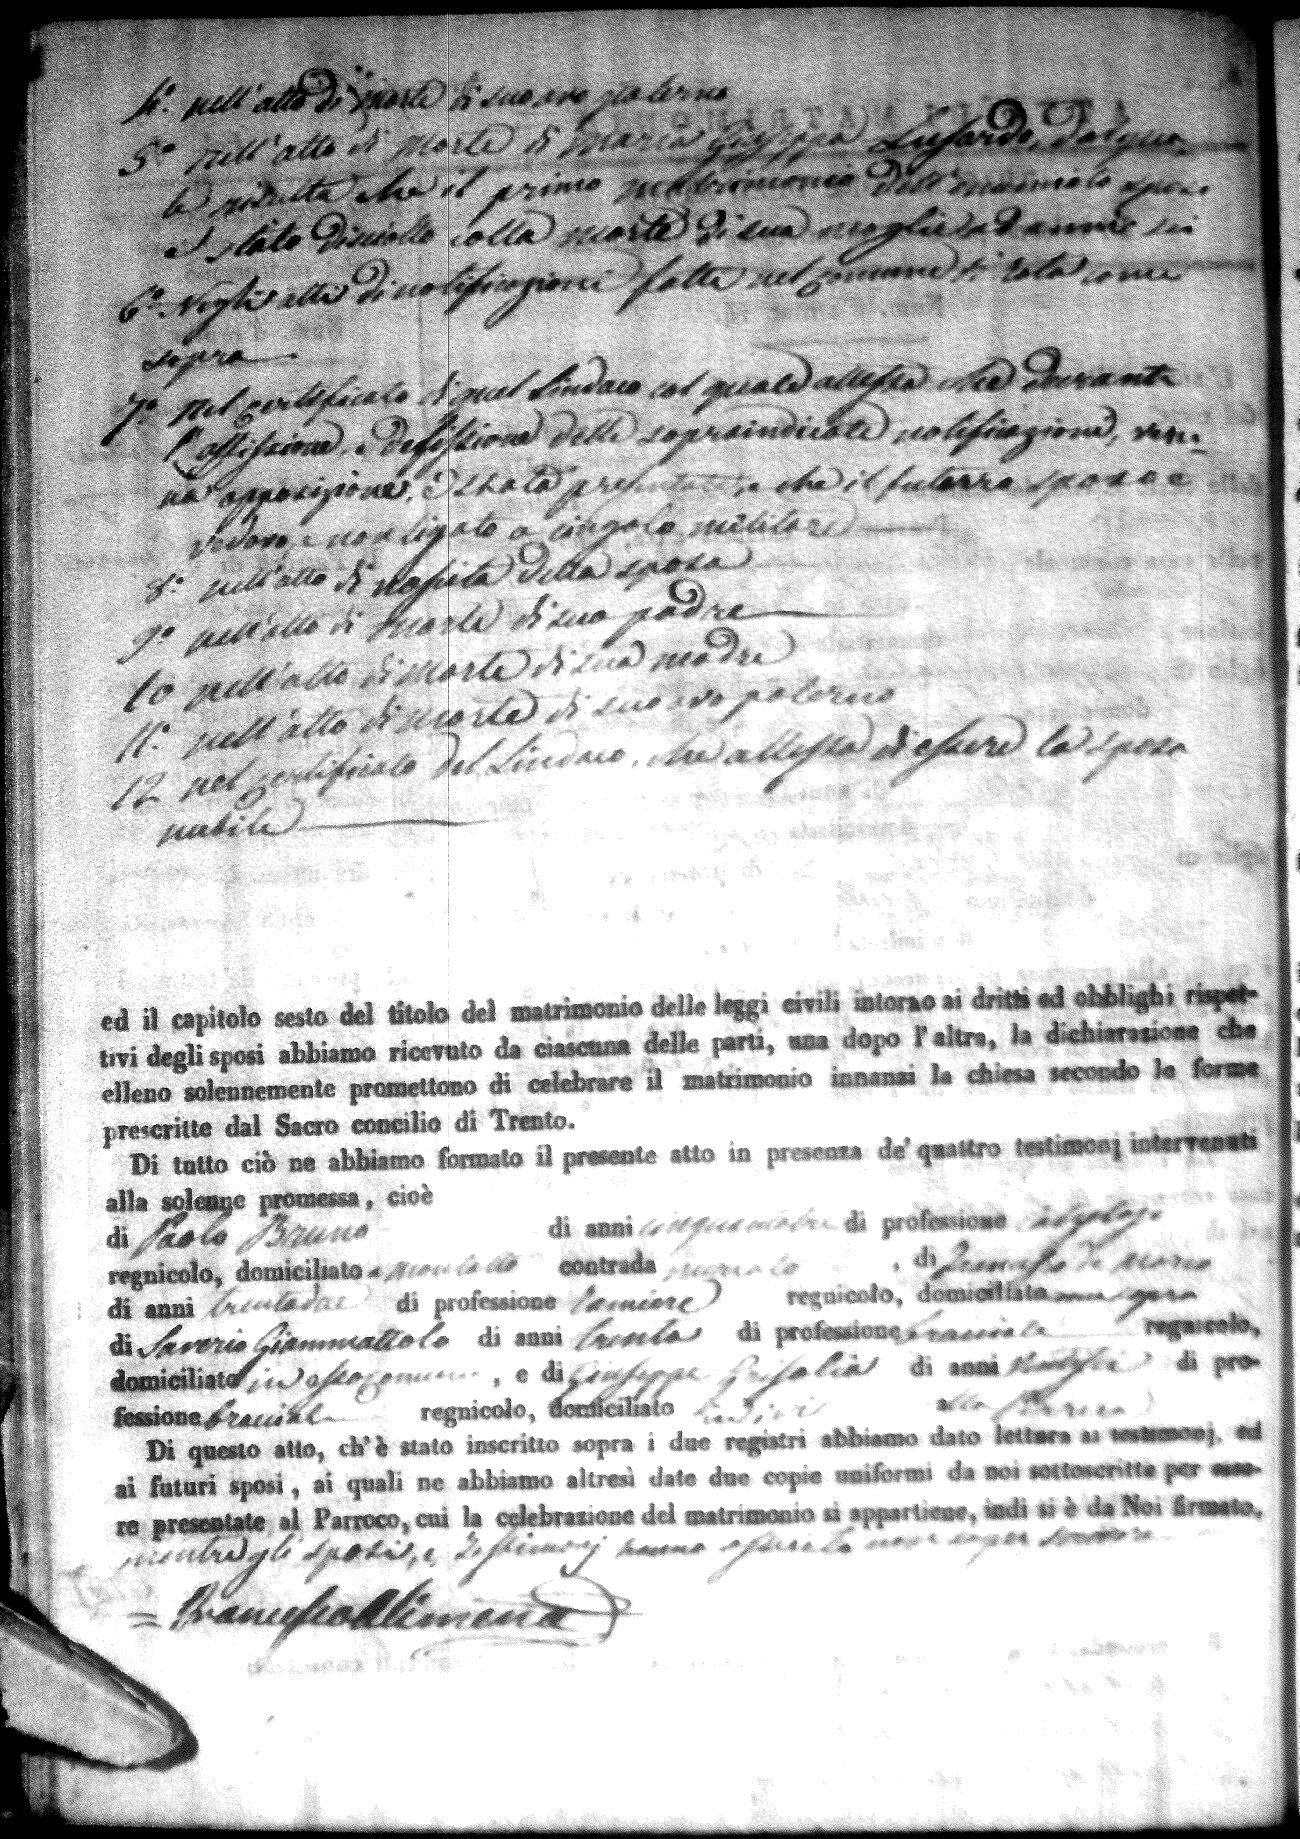 4.° nell'atto di morte di suo avo paterno
5.° nell'atto di morte di Maria Giuseppa Lusardo, dal qua
le risulta che il primo matrimonio dell' sposo
è stato disciolto colla morte di sua moglie
6.° Negli atti di notificazioni fatte nel comune di Rota come
sopra
7.° nel certificato di quel Sindaco col quale attessa che durante
l'affissione, e delle sopraindicate notificazione, niu-
na opposizione, è stata presentata, e che il futurro sposo è
vedovo, e non ligato a cingolo militare
8.° nell'atto di nascita della sposa
9.° nell'atto di morte di suo padre
10 nell'atto di morte di sua madre
11.° nell'atto di morte di suo avo paterno
12 nel certificato del Sindaco, che attessa di essere la sposa
nubile
ed il capitolo sesto del titolo del matrimonio delle leggi civili intorno ai dritti ed obblighi rispet-
tivi degli sposi abbiamo ricevuto da ciascuna delle parti, una dopo l'altra, la dichiarazione che
elleno solennemente promettono di celebrare il matrimonio innanzi la chiesa secondo le forme
prescritte dal Sacro concilio di Trento.
Di tutto ciò ne abbiamo formato il presente atto in presenza de' quattro testimonj intervenuti
alla solenne promessa, cioè
di Paolo Bruno di anni di professione
regnicolo, domiciliato a Montalto contrada , di Francesco di
di anni trentadue di professione regnicolo, domiciliato come sopra
di Saverio Giammattolo di anni trenta di professione bracciale regnicolo,
domiciliato in esso comune , e di Giuseppe Grisolia di anni di pro-
fessione bracciale regnicolo, domiciliato
Di questo atto, ch'è stato inscritto sopra i due registri abbiamo dato lettura ai testimonj, ed
ai futuri sposi, ai quali ne abbiamo altresì date due copie uniformi da noi sottoscritte per esse-
re presentate al Parroco, cui la celebrazione del matrimonio si appartiene, indi si è da Noi firmato,
mentre gli sposi, e testimonj hanno asserito non saper scrivere
= Francesco Alimena